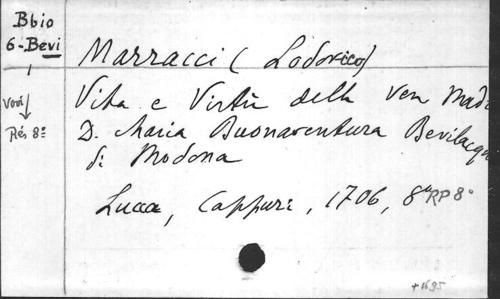 Bbio
6-Bevi
Marracci (Lodovico)
Vita e Virtù della ven Mad
Voir
Rés 8°
D. Maria Buonaventura Bevilacqu
di Modona
Lucca, Cappuri, 1706, 8° RP 8°
+1695